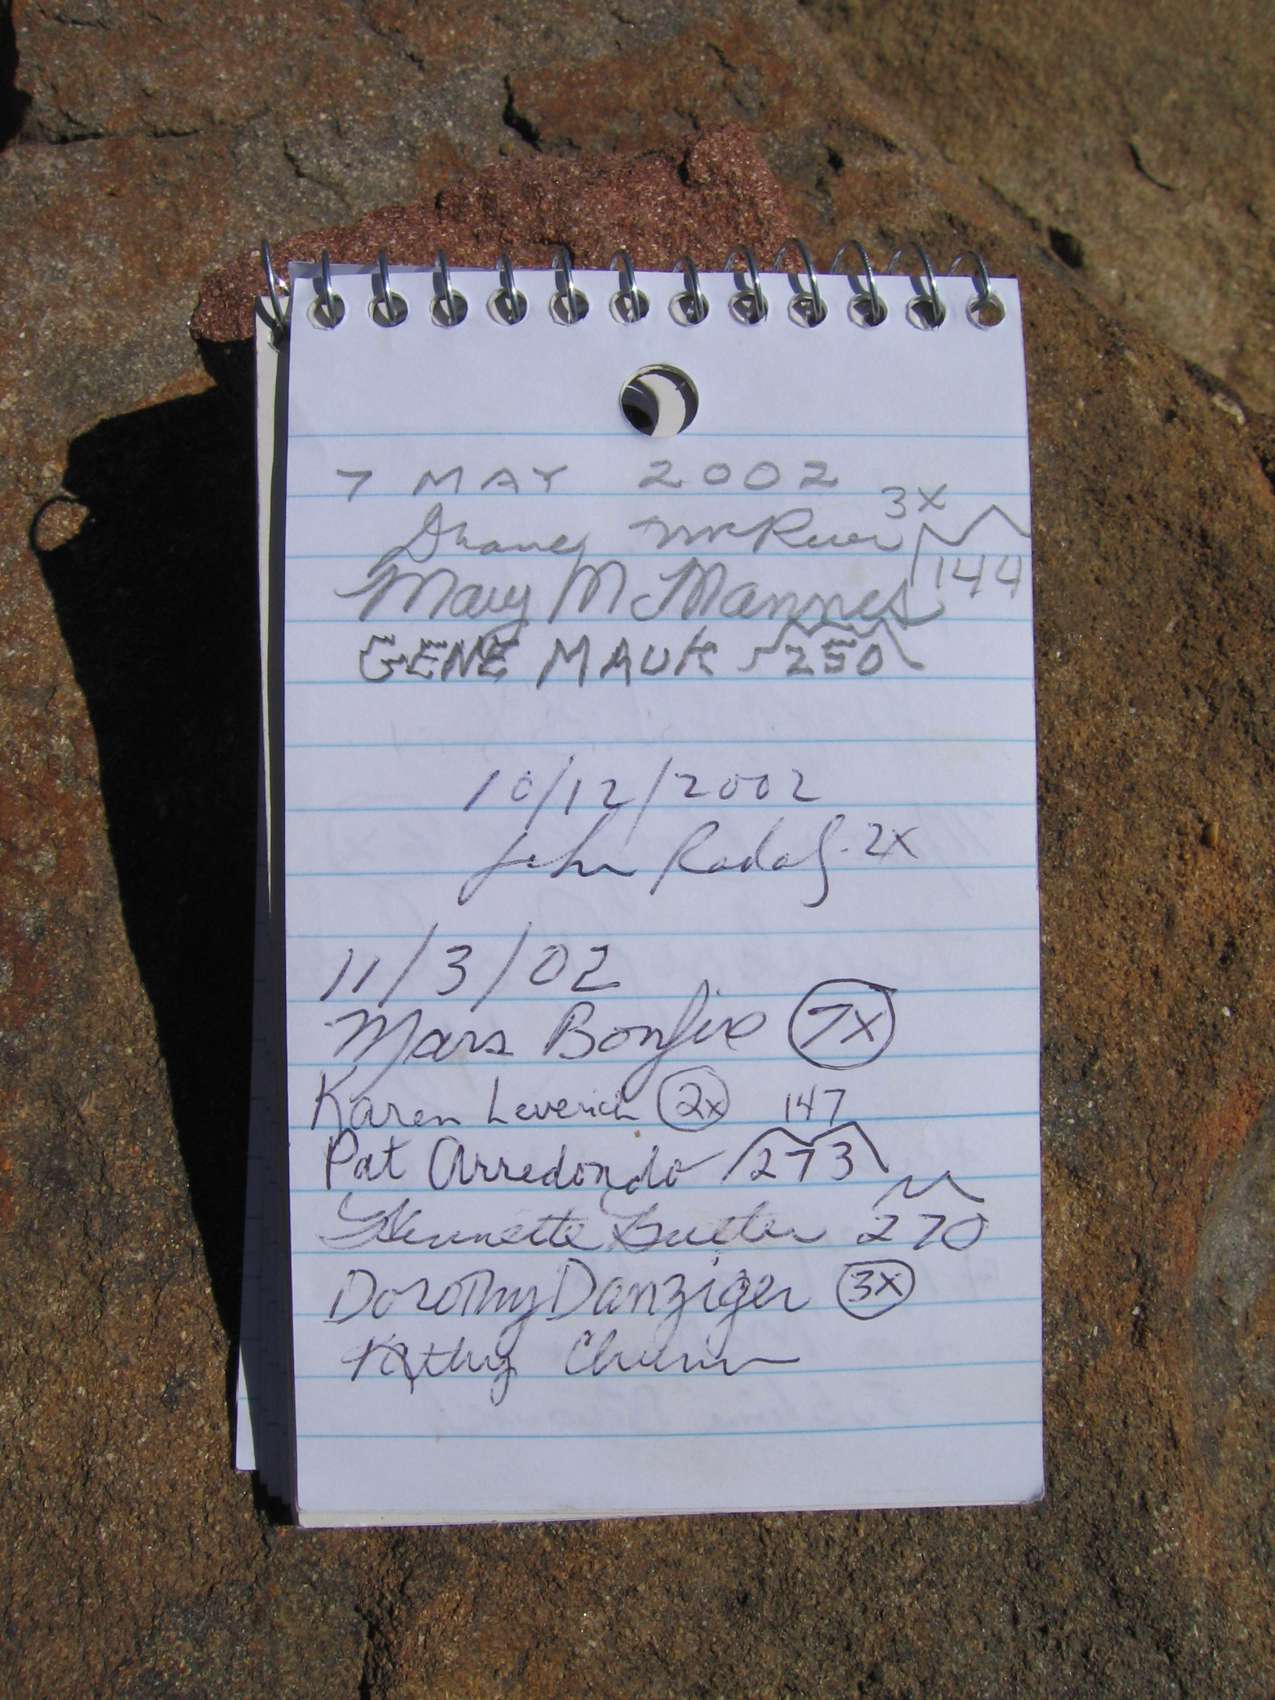 7 MAY 2002
3X
144
Mary McMannes
GENE MAUK 250
10/12/2002
John Radalj 2X
11/3/02
Mars Bonfire 7X
Karen Leverich 2x 147
Pat Arredondo 273
270
Dorothy Danziger 3X
Kathy